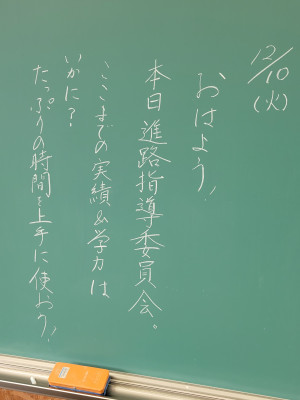 12/10
(火)
おはよう!
本日進路指導委員会。
ここまでの実績&学力は
いかに?
たっぷりの時間を上手に使おう!